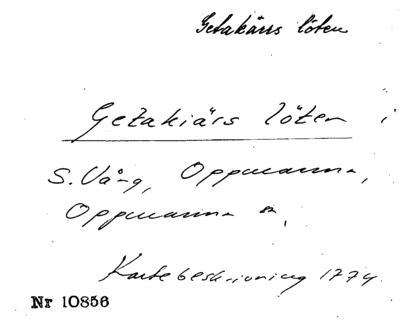 Getakärrs löten
Getakiärs löten i
S. Vång, Oppmanna,
Oppmanna sn,
Kartebeskrivning 1774.
Nr 10856